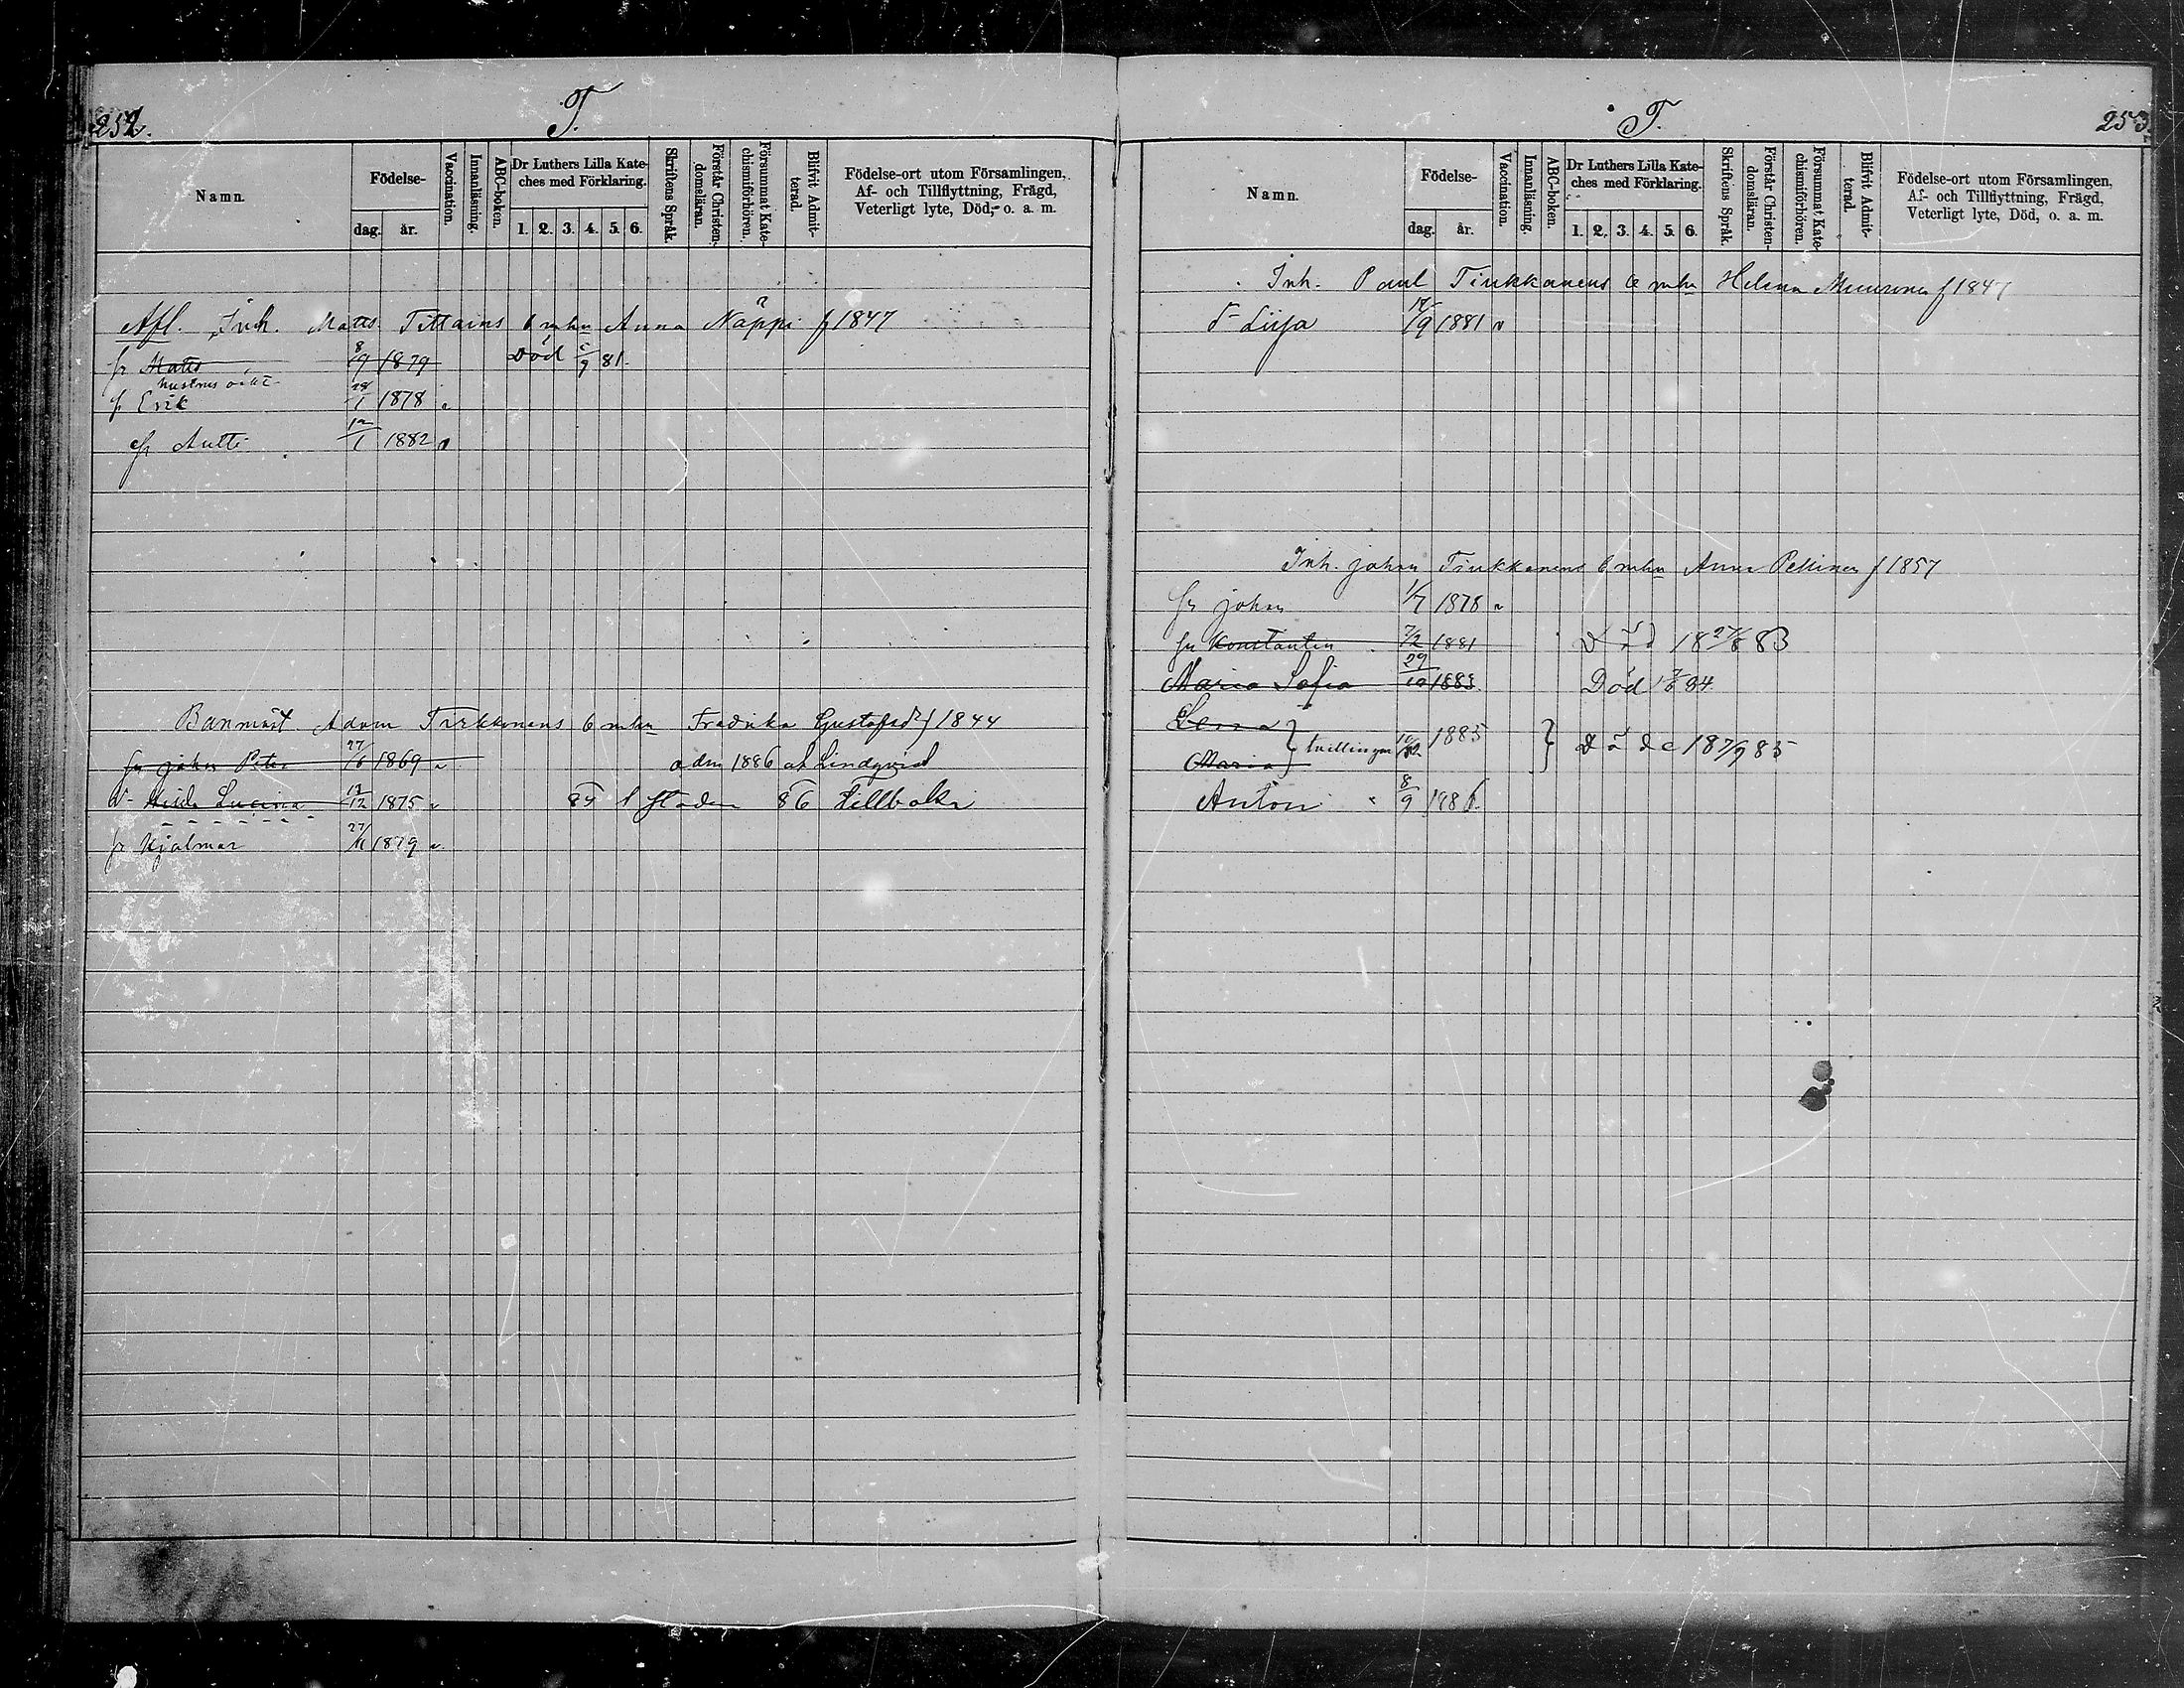 252.
T.
Namn.
Födelse-
dag.
år.
Vaccination.
Innanläsning.
ABC-boken.
Dr Luthers Lilla Kate-
ches med Förklaring.
1. 2. 3. 4. 5. 6.
Skriftens Språk.
Förstår Christen-
domsläran.
Försummat Kate-
chismiförhören.
Blifvit Admit-
terad.
Födelse-ort utom Församlingen,
Af- och Tillflyttning, Frägd,
Veterligt lyte, Död, o. a. m.
Afl. Inh. Matts Tittains Anna Näppi f 1847
Matts 8/9 1879 Död 81.
hustrus
Erik 1878
Antti 12/1 1882
Banmäst. Adam Tirkkonens Fredrika Gustafsd. f 1844
Johan Peter 27/6 1869 adm 1886 af Lindqvist
Lucina 1875 84 t Staden 86 tillbaka
Hjalmar 27/11 1879
T.
253.
Namn.
Födelse-
dag.
år.
Vaccination.
Innanläsning.
ABC-boken.
Dr Luthers Lilla Kate-
ches med Förklaring.
1. 2. 3. 4. 5. 6.
Skriftens Språk.
Förstår Christen-
domsläran.
Försummat Kate-
chismiförhören.
Blifvit Admit-
terad.
Födelse-ort utom Församlingen,
Af- och Tillflyttning, Frägd,
Veterligt lyte, Död, o. a. m.
Inh. Paul Tirkkanens Helena Muuronen f 1847
Liisa 1881
Inh. Johan Tirkkanens Anna Pellinen f 1857
Johan 1/7 1878
Konstantin 7/2 1881 Död 18 27/8 83
Maria Sofia 29/10 1883 Död 84
Lena
Maria } tvillingar 1885 } Döde 18 7/9 85
Anton 8/9 1886